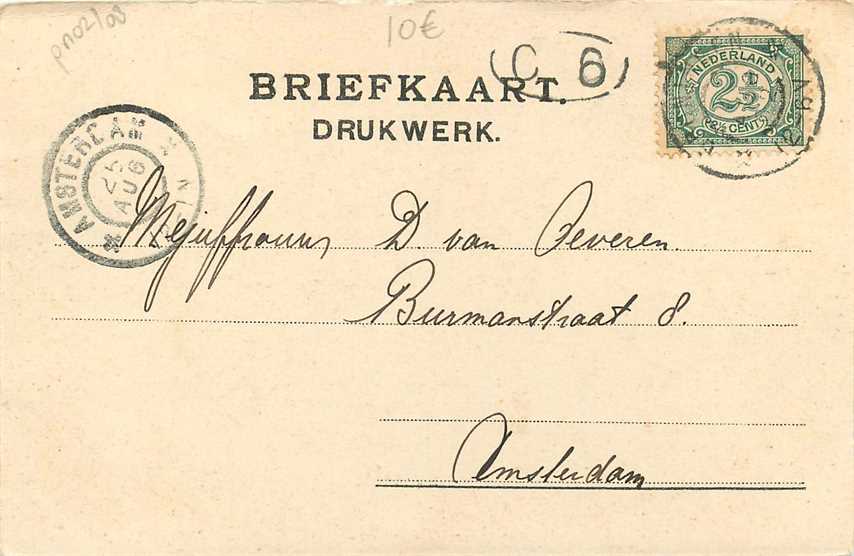 pn02/08
10€
C 6
BRIEFKAART.
DRUKWERK.
NEDERLAND
2½
2½ CENT
AMSTERDAM
25
AUG
Mejuffrouw D van Oeveren
Burmanstraat 8.
Amsterdam